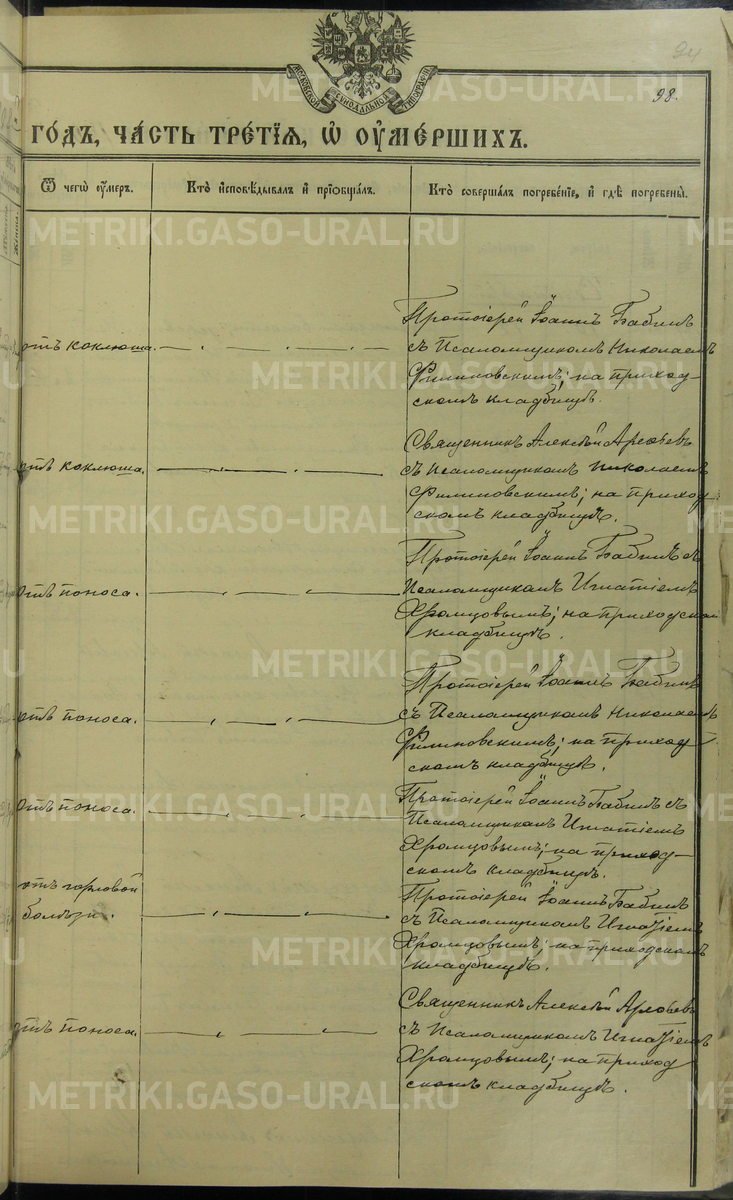 94
98.
МОСКОВСКОЙ СѴНОДАЛЬНОЙ ТИПОГРАФІИ
ГОДЪ, ЧАСТЬ ТРЕТІЯ, Ѡ ОУМЕРШИХЪ.
Ѿ чегѡ оумеръ.
Кто исповѣдывалъ и пріобщалъ.
Кто совершалъ погребеніе, и гдѣ погребены.
отъ коклюша.
Протоіерей Іоаннъ Бабинъ
съ Псаломщикомъ Николаемъ
Филиновскимъ; на приход-
скомъ кладбищѣ.
отъ коклюша.
Священникъ Алексѣй Арефьевъ
съ Псаломщикомъ Николаемъ
Филиновскимъ; на приход-
скомъ кладбищѣ.
отъ поноса.
Протоіерей Іоаннъ Бабинъ съ
Псаломщикомъ Игнатіемъ
Хромцовымъ; на приходском
кладбищѣ.
отъ поноса.
Протоіерей Іоаннъ Бабинъ
съ Псаломщикомъ Николаемъ
Филиновскимъ; на приход-
скомъ кладбищѣ.
отъ поноса.
Протоіерей Іоаннъ Бабинъ съ
Псаломщикомъ Игнатіемъ
Хромцовымъ; на приход-
скомъ кладбищѣ.
отъ горловой
болѣзни.
Протоіерей Іоаннъ Бабинъ
съ Псаломщикомъ Игнатіемъ
Хромцовымъ; на приходскомъ
кладбищѣ.
отъ поноса.
Священникъ Алексѣй Арефьевъ
съ Псаломщикомъ Игнатіемъ
Хромцовымъ; на приход
скомъ кладбищѣ.
METRIKI.GASO-URAL.RU